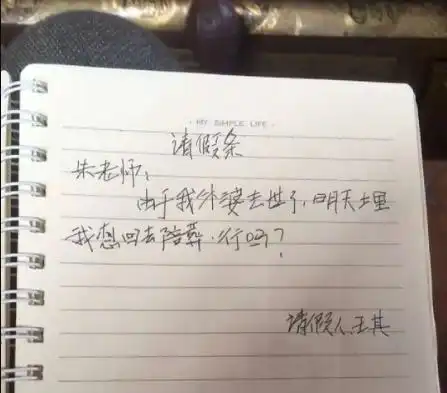 · MY SIMPLE LIFE ·
请假条
朱老师：
由于我外婆去世了,明天土里
我想回去陪葬.行吗?
请假人王其